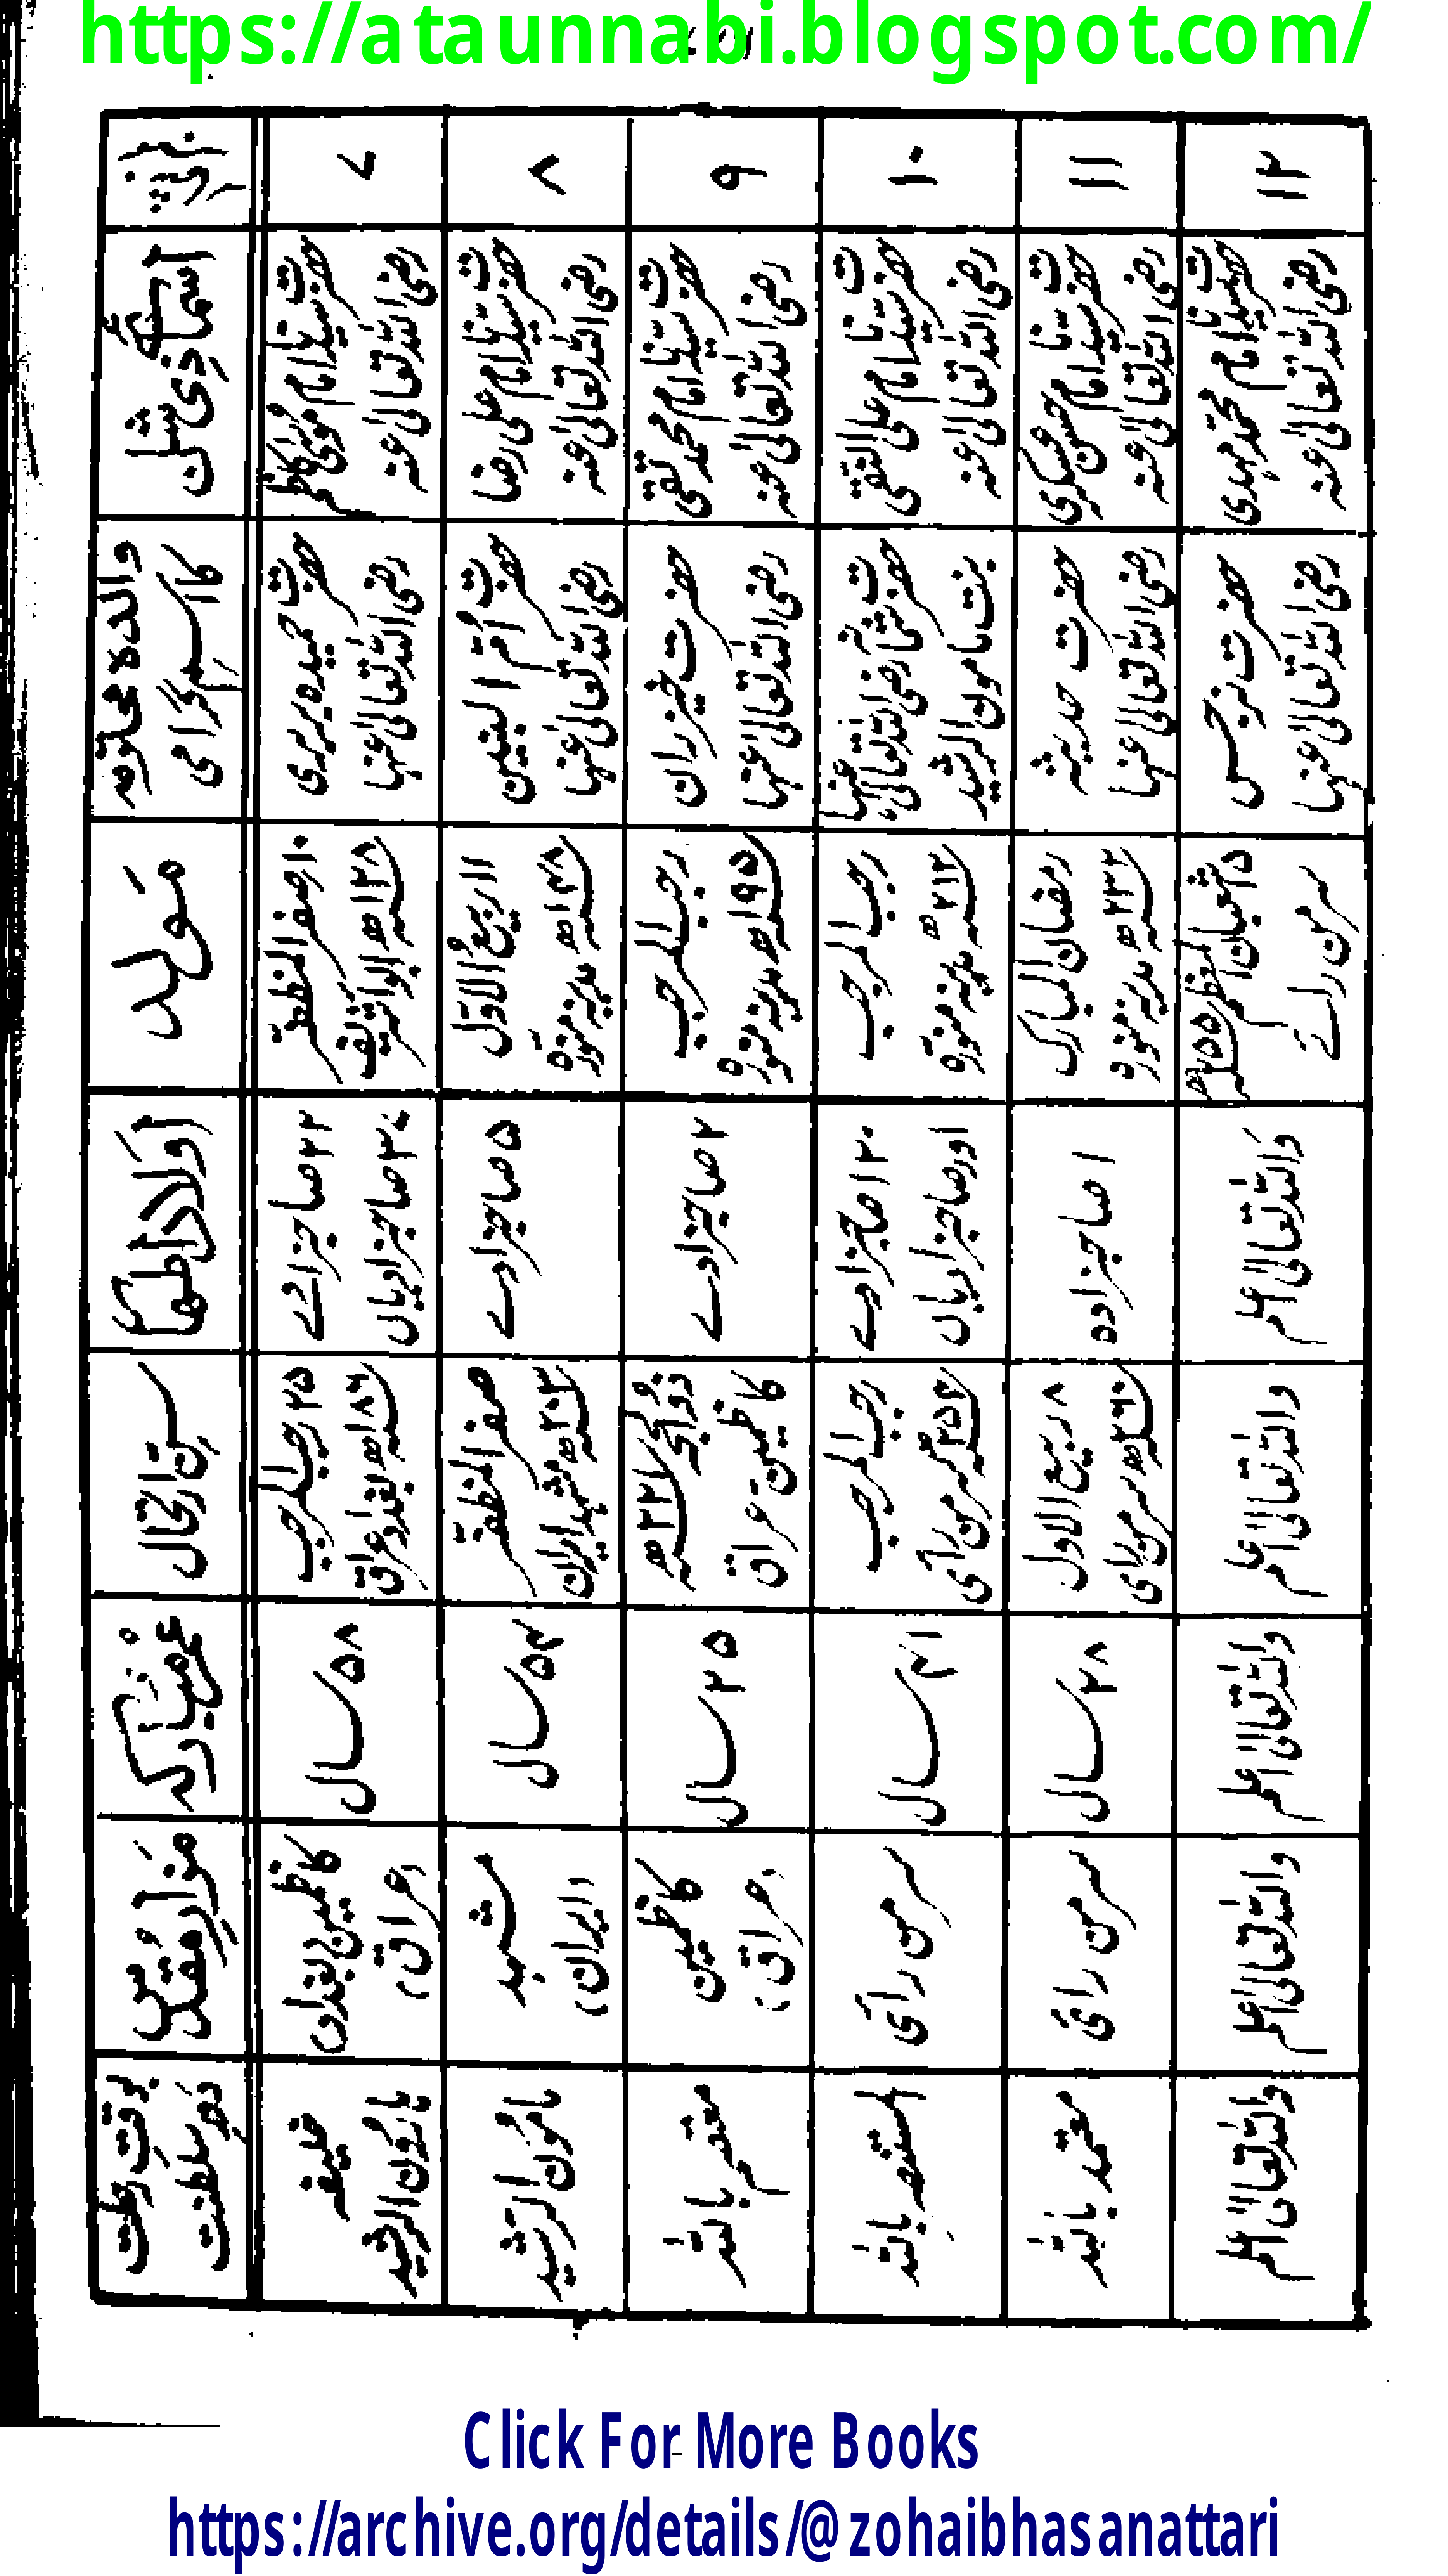 https://ataunnabi.blogspot.com/
نمبر ترتیب
اسمائے ذی شان
والدہ مخدومہ کا اسم گرامی
مولد
اولاد اطہار
سن ارتحال
عمر مبارکہ
مزار مقدس
بوقت رحلت دور سلطنت
۷
حضرت سیدنا امام موسیٰ کاظم
رضی اللہ تعالیٰ عنہ
حضرت حمیدہ بریری
رضی اللہ تعالیٰ عنہا
۱۰ صفر المظفر
۱۲۸ھ ابوا شریف
۲۲ صاجزادے
۳۷ صاجزادیاں
۲۵ رجب المرجب
۱۸۶ھ بغداد عراق
۵۸ سال
کاظمین بغداد
(عراق)
خلیفہ
ہارون الرشید
۸
حضرت سیدنا امام علی رضا
رضی اللہ تعالیٰ عنہ
حضرت اُمّ البنین
رضی اللہ تعالیٰ عنہا
۱۱ ربیع الاوّل
۱۴۸ھ مدینہ منورہ
۵ صاجزادے
صفر المظفر
۲۰۳ھ مشہد ایران
۵۴ سال
مشہد
(ایران)
مامون الرشید
۹
حضرت سیدنا امام محمد تقی
رضی اللہ تعالیٰ عنہ
حضرت خیزران
رضی اللہ تعالیٰ عنہا
رجب المرجب
۱۹۵ھ مدینہ منورہ
۲ صاجزادے
ذوالحجہ ۲۲۱ھ
کاظمین عراق
۲۵ سال
کاظمین
(عراق)
معتصم باللہ
۱۰
حضرت سیدنا امام علی النقی
رضی اللہ تعالیٰ عنہ
حضرت ثمانہ رضی اللہ تعالیٰ عنہا
بنت مامون الرشید
رجب المرجب
۲۱۲ھ مدینہ منورہ
۱۲۰ صاجزادے
اور صاجزادیاں
رجب المرجب
۲۵۴ھ سرمن رأی
۴۱ سال
سرمن رأی
المستنصر باللہ
۱۱
حضرت سیدنا امام حسن عسکری
رضی اللہ تعالیٰ عنہ
حضرت حدیثہ
رضی اللہ تعالیٰ عنہا
رمضان المبارک
۲۳۲ھ مدینہ منورہ
۱ صاجزادہ
۸ ربیع الاول
۲۶۰ھ سرمن رای
۲۸ سال
سرمن رای
معتمد باللہ
۱۲
حضرت سیدنا امام محمد مہدی
رضی اللہ تعالیٰ عنہ
حضرت نرجس
رضی اللہ تعالیٰ عنہا
۱۵ شعبان المعظم ۲۵۵ھ
سرمن رائے
واللہ تعالیٰ اعلم
واللہ تعالیٰ اعلم
واللہ تعالیٰ اعلم
واللہ تعالیٰ اعلم
واللہ تعالیٰ اعلم
Click For More Books
https://archive.org/details/@zohaibhasanattari